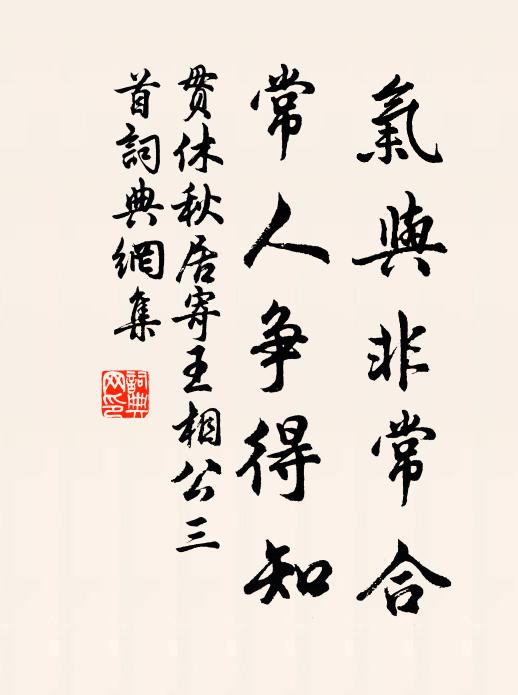 氣與非常合
常人爭得知
貫休秋居寄王相公三
首詞典網集
詞典
网印